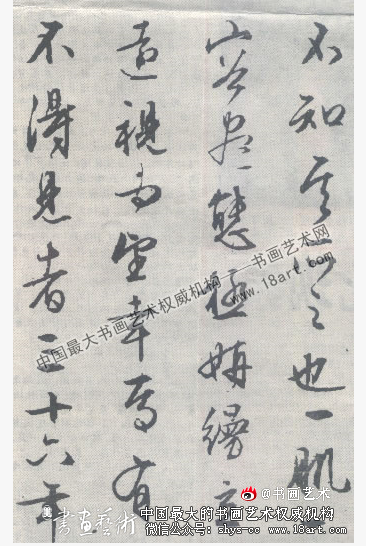 不知其所之也一肌
一容盡態極妍縵立
遠視而望幸焉有
不得見者三十六年
中国最大书画艺术权威机构——书画艺术网
www.18art.com
@书画艺术
書畫藝術
中国最大的书画艺术权威机构
微信公众号: shys-cc www.18art.com